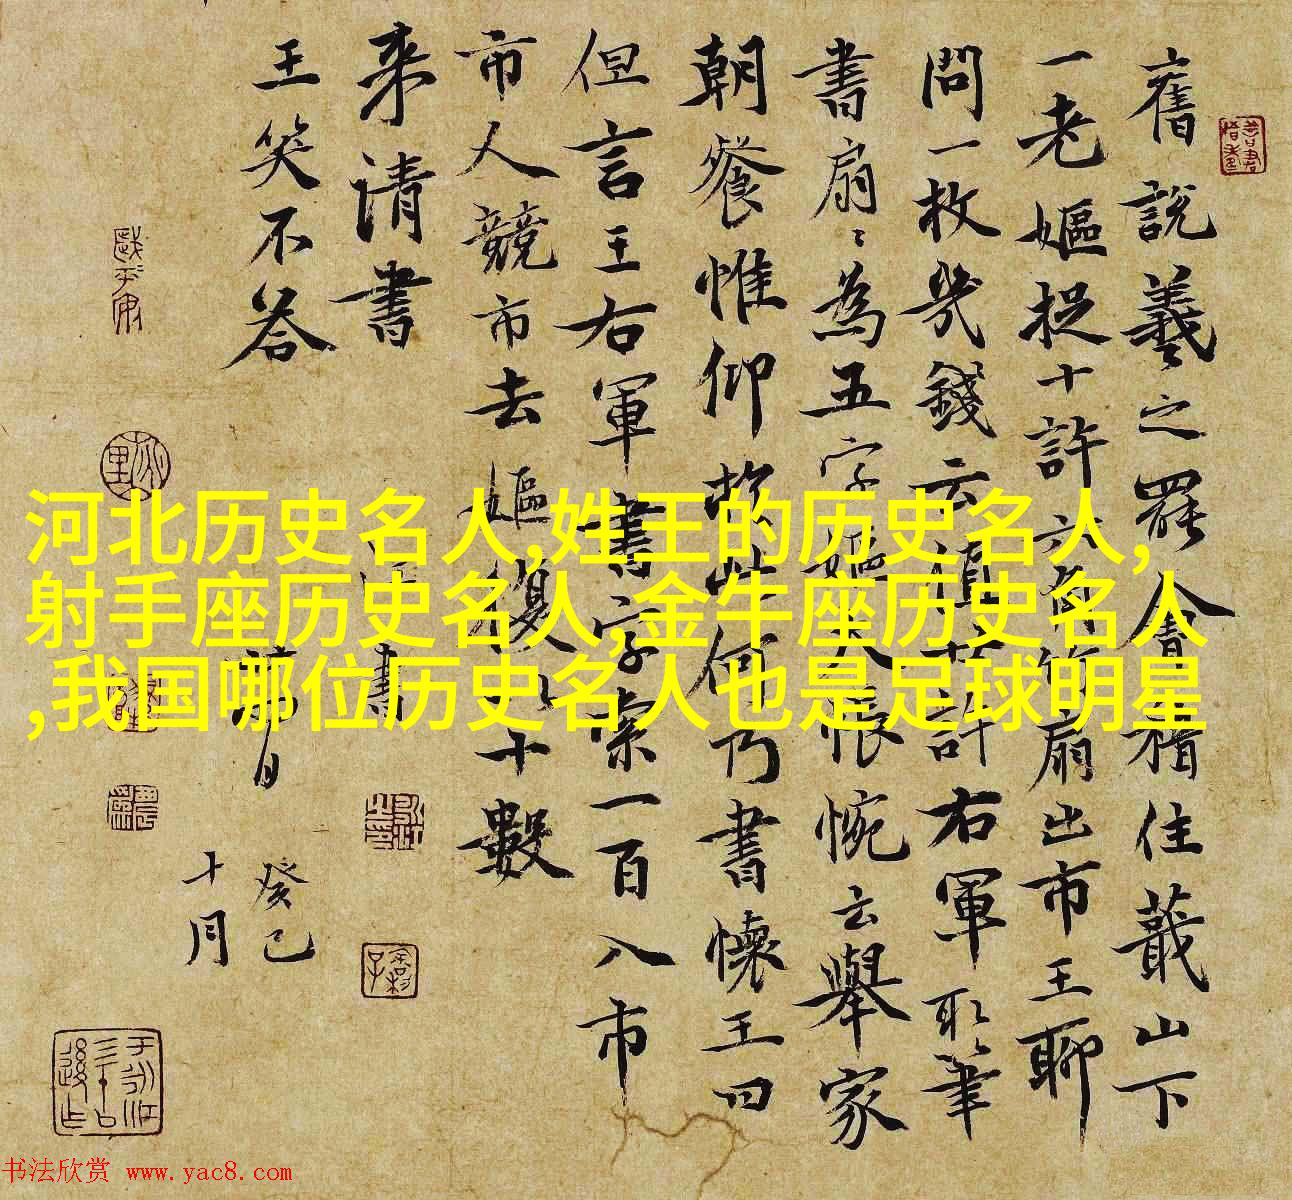 舊說羲之罷會稽住蕺山下
一老嫗捉十許六角竹扇出市王聊
問一枚幾錢云值廿許右軍取筆
書扇〻為五字嫗大悵惋云舉家
朝餐惟仰於此何乃書壞王曰
但言王右軍書字索一百入市
市人競市去嫗復以十數
来請書
王笑不答
書
癸巳
十月
河北历史名人,姓王的历史名人,
射手座历史名人,金牛座历史名人
,我国哪位历史名人也是足球明星
书法欣赏 www.yac8.com